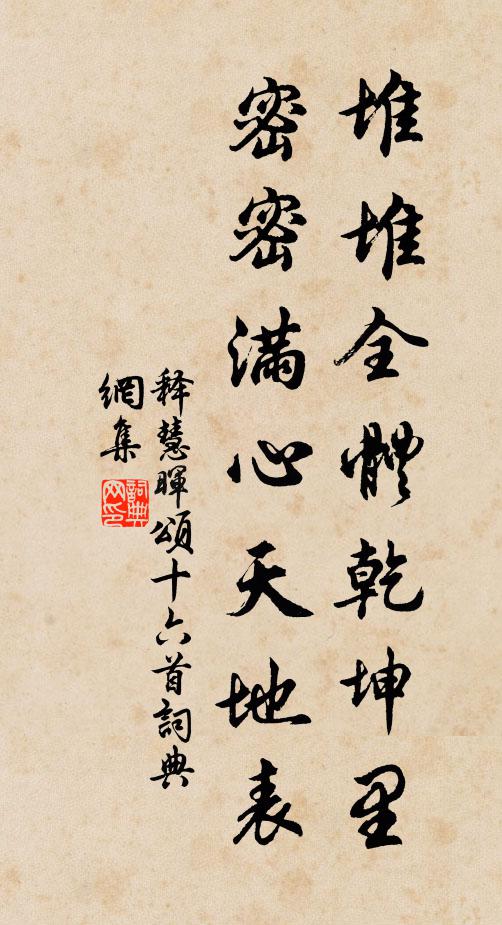 堆堆全體乾坤里
密密滿心天地表
释慧暉頌十六首詞典
網集
詞典
网印